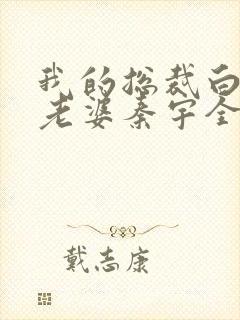 我的总裁白
老婆秦宇全
戴志康